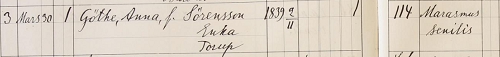 3 Mars 30 1 Göthe, Anna, f. Sörensson 1839 9/11 1 114 Marasmus
Enka senilis
Torup